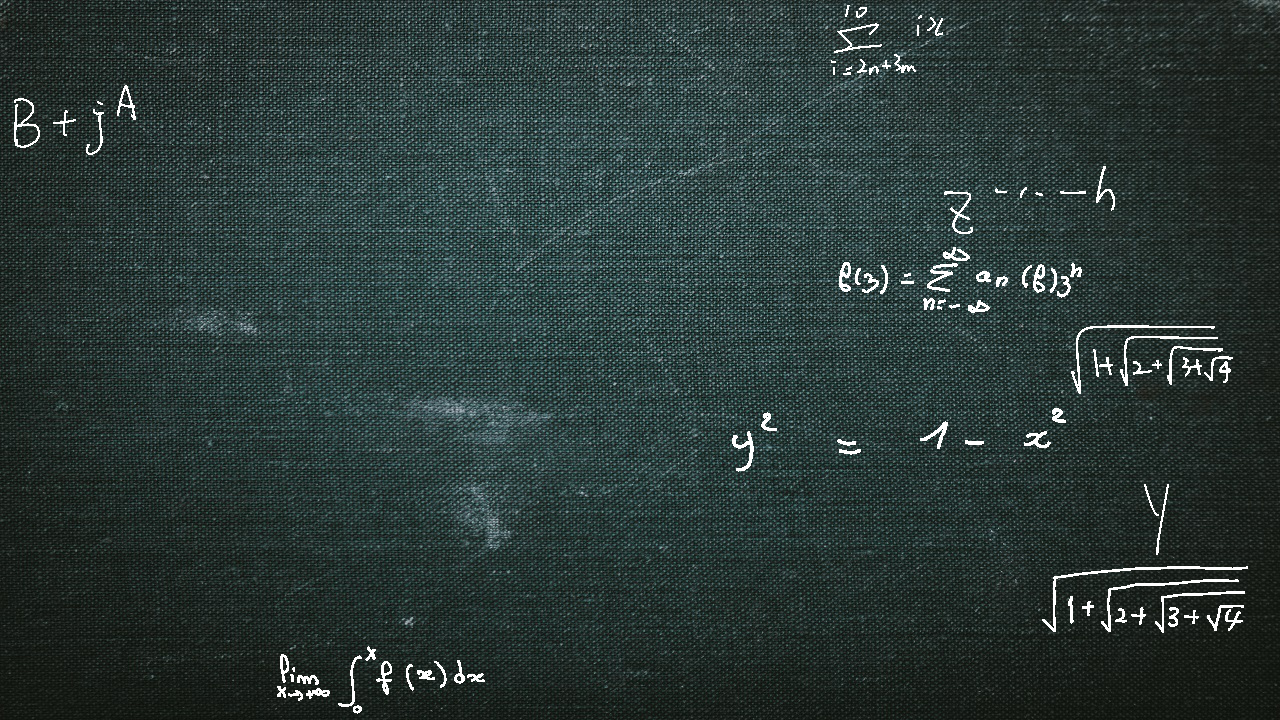 \sum_{i=2n+3m}^{10} ix
B + j^A
z^{\cdot\cdot\cdot\cdot - h}
f(z) = \sum_{n=-\infty}^{\infty} a_n (f) z^n
\sqrt{1+\sqrt{2+\sqrt{3+\sqrt{4}}}}
y^2 = 1 - x^2
Y
\sqrt{1+\sqrt{2+\sqrt{3+\sqrt{4}}}}
\lim_{x \to +\infty} \int_0^x f(x) dx